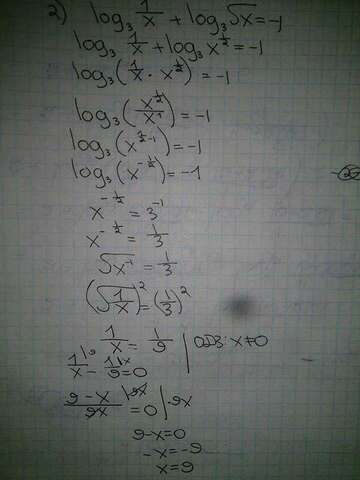 2) log₃ 1/x + log₃ √x = -1
log₃ 1/x + log₃ x^(1/2) = -1
log₃ (1/x · x^(1/2)) = -1
log₃ (x^(1/2)/x¹) = -1
log₃ (x^(1/2 - 1)) = -1
log₃ (x^(-1/2)) = -1
x^(-1/2) = 3^(-1)
x^(-1/2) = 1/3
√x⁻¹ = 1/3
(√(1/x))² = (1/3)²
1/x = 1/9 | ОДЗ: x ≠ 0
1/x - 1/9 = 0
(9 - x)/9x = 0 | · 9x
9 - x = 0
-x = -9
x = 9